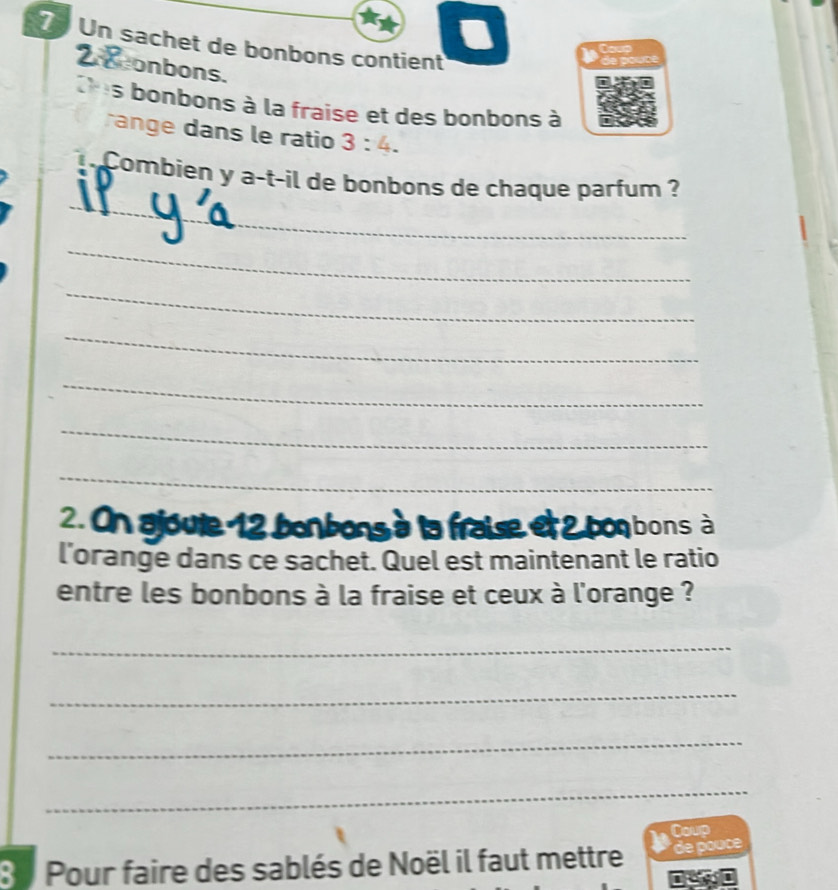 7 Un sachet de bonbons contient
28 bonbons.
Des bonbons à la fraise et des bonbons à
range dans le ratio 3 : 4.
1. Combien y a-t-il de bonbons de chaque parfum ?
il y'a
2. On ajoute 12 bonbons à la fraise et 2 bonbons à
l'orange dans ce sachet. Quel est maintenant le ratio
entre les bonbons à la fraise et ceux à l'orange ?
8 Pour faire des sablés de Noël il faut mettre
Coup
de pouce
Coup
de pouce